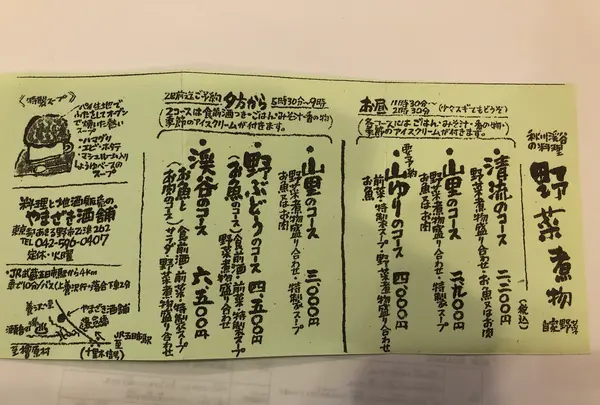 秋川渓谷の料理
野菜煮物
自家野菜
お昼 11時30分〜2時30分 (ササスギてもどうぞ)
(各コースにはごはん・みそ汁・香の物・季節のアイスクリームが付きます。)
・清流のコース 二、二〇〇円(税込)
野菜煮物盛り合わせ・お魚又はお肉
・山里のコース 二、九〇〇円
野菜煮物盛り合わせ・特製スープ
お魚
要予約
・山ゆりのコース 四、〇〇〇円
前菜・野菜煮物盛り合わせ・特製スープ
お魚
・山里のコース 三、〇〇〇円
野菜煮物盛り合わせ・特製スープ
お魚又はお肉
2日前迄ご予約 夕方から 5時30分〜9時
(各コースは食前酒つき・ごはん・みそ汁・香の物・季節のアイスクリームが付きます。)
・野ぶどうのコース 四、五〇〇円
(お魚のコース) 食前酒・前菜・特製スープ
野菜煮物盛り合わせ
・渓谷のコース 六、五〇〇円
(お魚とお肉のコース) 食前酒・前菜・特製スープ
サラダ・野菜煮物盛り合わせ
《特製スープ》
・パイ生地でふたをしてオーブンで焼いた熱いスープ
・ハマグリ
・エビ・ホタテ
・マッシュルーム入り
しょうゆベースのスープ
料理と地酒販売の
やまざき酒舗
東京都あきる野市乙津262
TEL 042-596-0407
定休・火曜
・JR武蔵五日市駅から4km
車で10分/バスにて養沢行・落合下車2分
養沢
やまざき酒舗
至檜原村
JR五日市駅
(十里木信号)